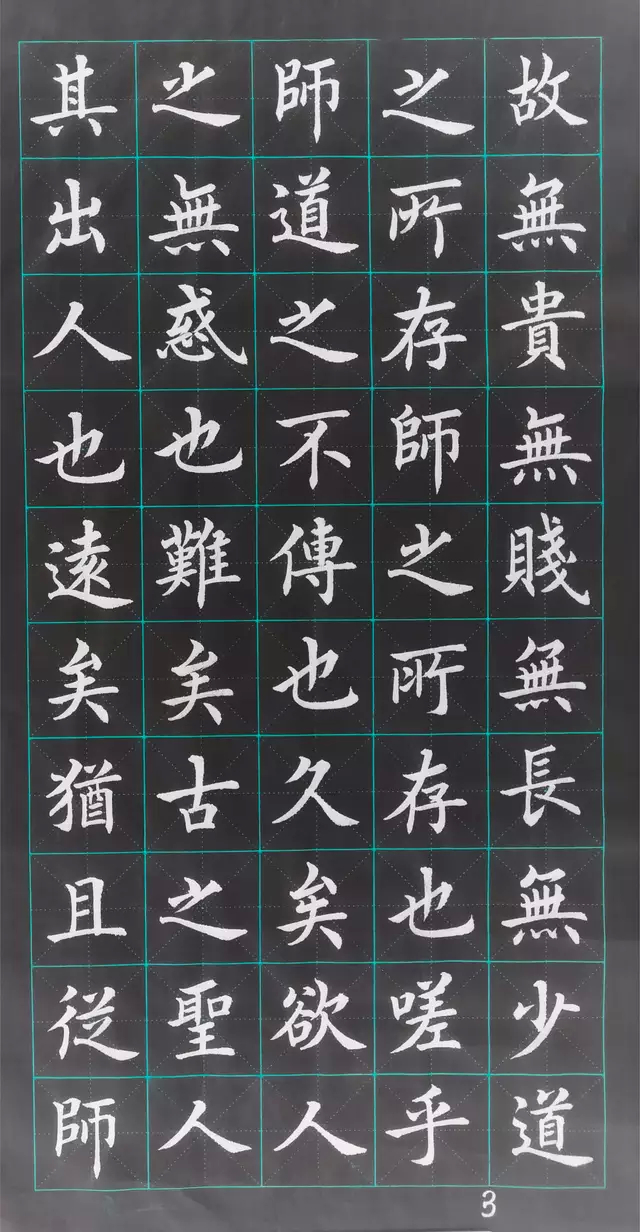 故無貴無賤無長無少道
之所存師之所存也嗟乎
師道之不傳也久矣欲人
之無惑也難矣古之聖人
其出人也遠矣猶且從師
3